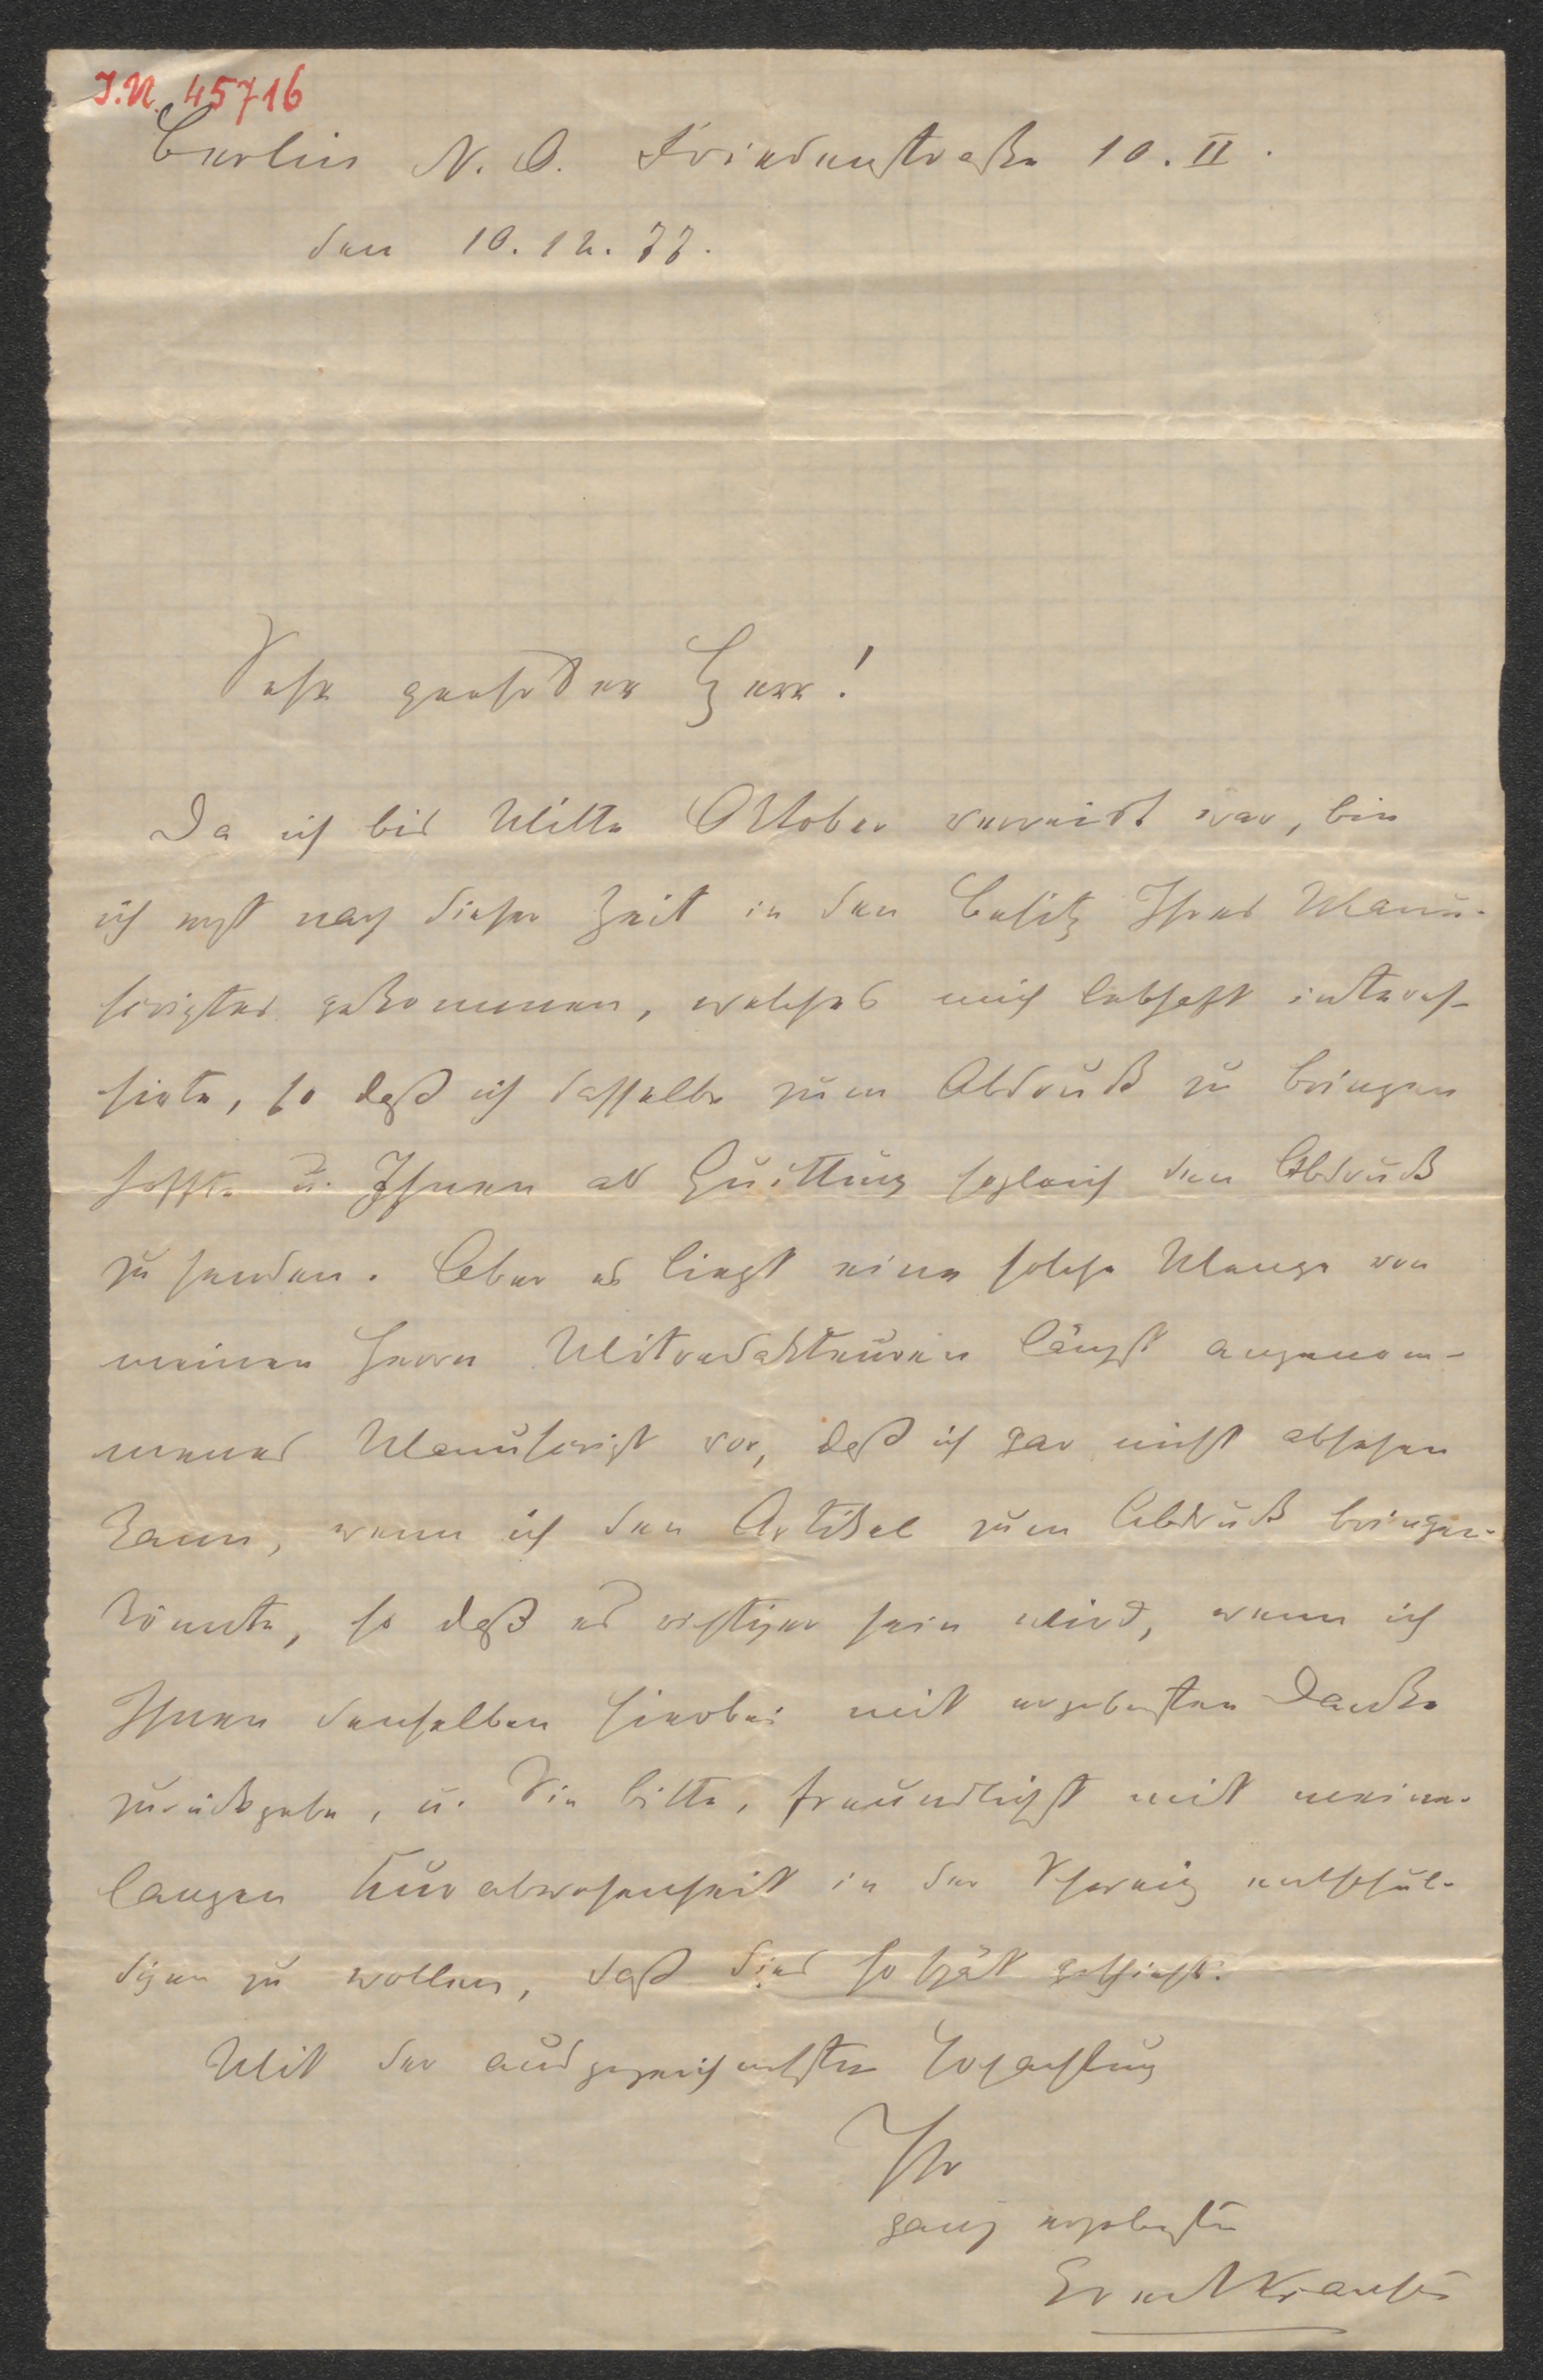 I.N. 45716
Berlin N. O. Friedenstraße 10. II.
den 10. 12. 77.
Sehr geehrter Herr!
Da ich bis Mitte Oktober verreist war, bin
ich erst nach dieser Zeit in den Besitz Ihres Manu-
scriptes gekommen, welches mich lebhaft interes-
sirte, so daß ich dasselbe zum Abdruck zu bringen
hoffte u. Ihnen als Quittung sogleich den Abdruck
zu senden. Aber es liegt eine solche Menge von
meinen Herrn Mitredakteuren längst angenom-
menes Manuscript vor, daß ich gar nicht absehen
kann, wenn ich den Artikel zum Abdruck bringen
könnte, so daß es richtiger sein wird, wenn ich
Ihnen denselben hierbei mit ergebensten Danke
zurückgebe, u. Sie bitte, freundlichst mit meiner
langen Kurabwesenheit in der Schweiz entschul-
digen zu wollen, daß dies so spät geschieht.
Mit der ausgezeichnetsten Hochachtung
Ihr
ganz ergebenster
Ernst Krause